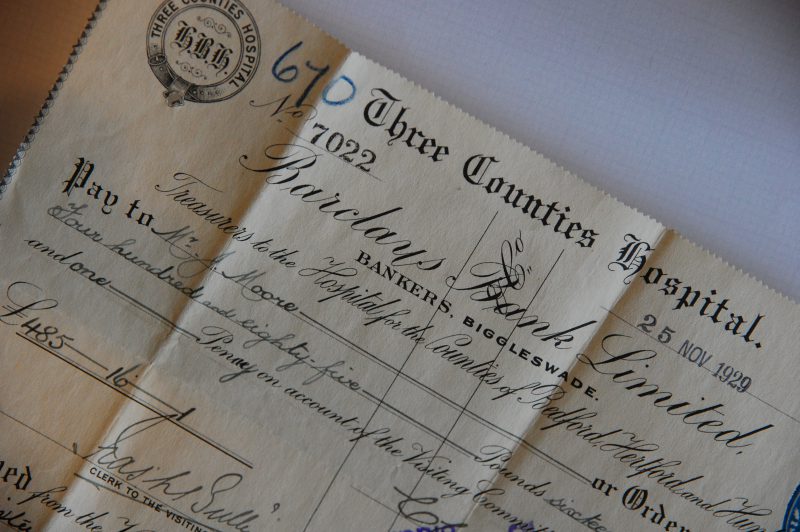 THREE COUNTIES HOSPITAL
HBH.
670
Three Counties Hospital.
No 7022
25 NOV 1929
Barclays Bank Limited,
& Co
BANKERS, BIGGLESWADE.
Treasurers to the Hospital for the Counties of Bedford, Hertford and Hun
Pay to Mr J. Moore or Order
Four hundred and eighty-five Pounds sixte
and one Penny on account of the Visiting Commi
£485-16-1
CLERK TO THE VISITIN
from the